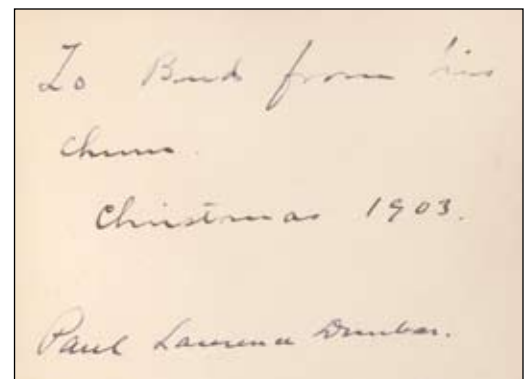 To Bud from his
chum.
Christmas 1903.
Paul Laurence Dunbar.